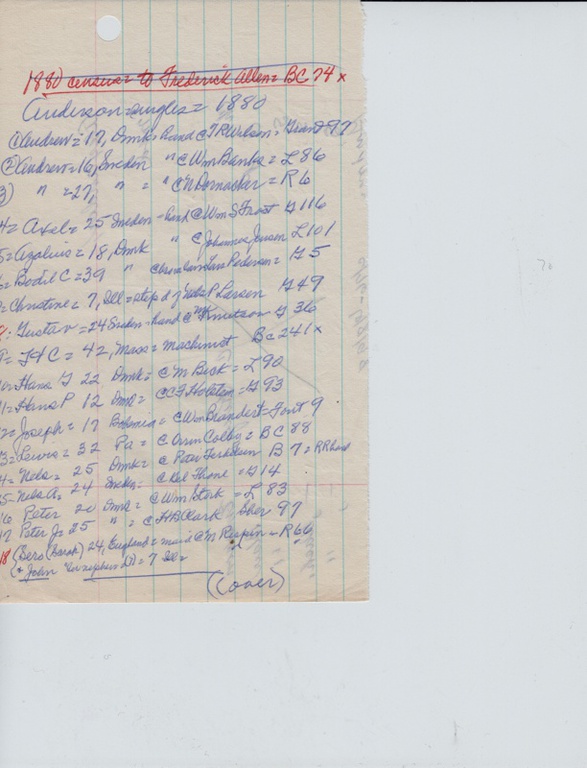 1880 census = to Frederick Allen = BC 74 x
Anderson = singles = 1880
(1) Andrew = 17, Dmk = hand c T R Wilson = Grant 97
(2) Andrew = 16, Sweden " c Wm Banks = L 86
3) " = 27, " = " c N = R 6
4 = Axel = 25 Sweden = hand c Wm S Frost G 116
5 = = 18, Dmk " c Johannes Jensen L 101
6 = Bodil C = 39 " c Pedersen = G 5
= Christine = 7, Ill = step d of Nels P Larsen G 49
8: Gustav = 24 Sweden = hand c Knutson G 36
9 = J H C = 42, Mass = machinist BC 241 x
10 = Hans G 22 Dmk = c M Beck = L 90
11 = Hans P 12 Dmk = c C F Holsten = G 93
12 = Joseph = 17 Bohemia = c Wm Brandert = Fort 9
13 = Lewis = 32 Pa = c Orin Colby = BC 88
14 = Nels = 25 Dmk = c Peter B 7 = RR hand
15 = Nels A = 24 Sweden = c Kal Thone = G 14
16 Peter 20 Dmk = c Wm Stork = L 83
17 Peter J = 25 " = c H B Clark Sher 97
18 (Sere (Sarah) 24, England = maid c M = R 66
(+ John = 7 Ill
(over)